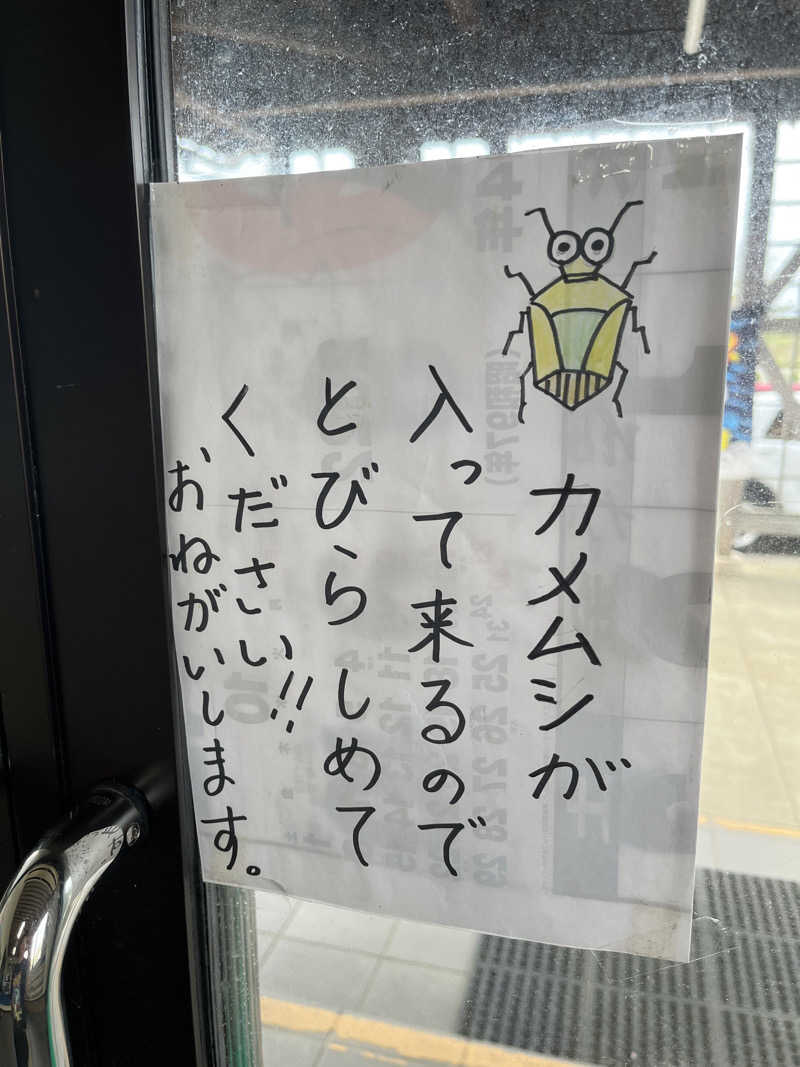 カメムシが
入って来るので
とびらしめて
ください!!
おねがいします。
24
31 25 26 27 28 29